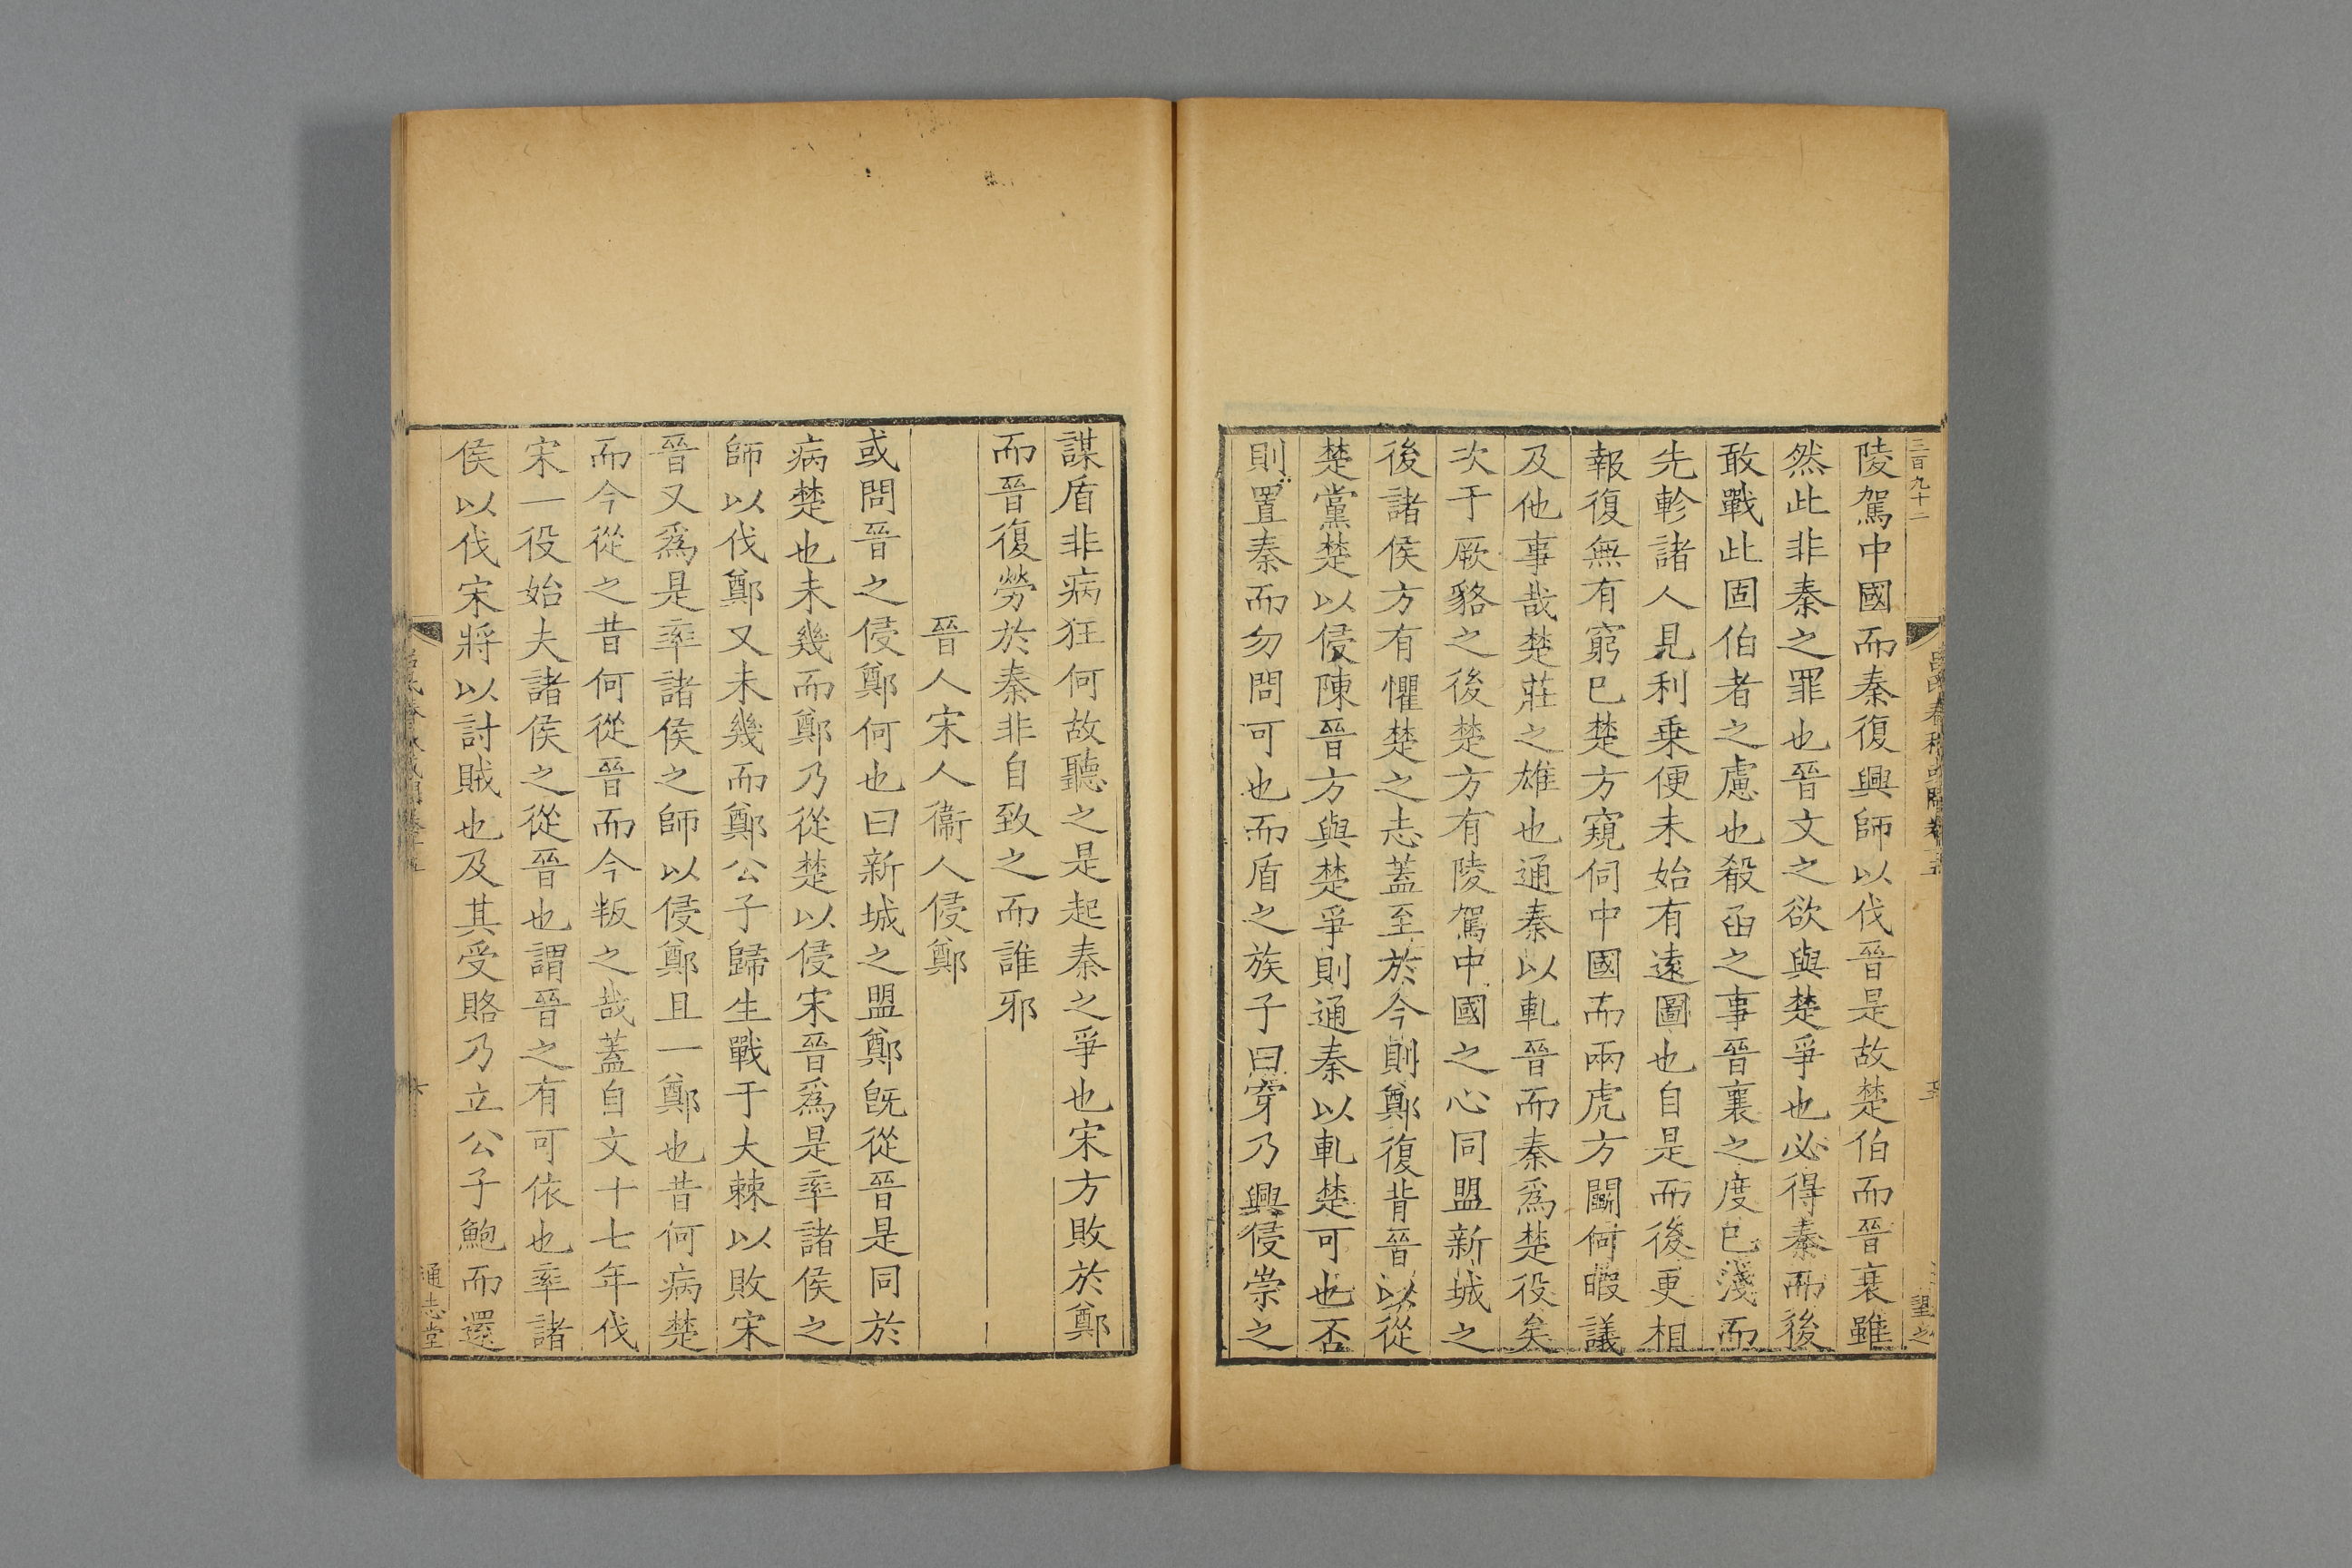 三百九十二
陵駕中國而秦復興師以伐晉是故楚伯而晉衰雖
然此非秦之罪也晉文之欲與楚爭也必得秦而後
敢戰此固伯者之慮也殽函之事晉襄之度已淺而
先軫諸人見利乗便未始有遠圖也自是而後更相
報復無有窮已楚方窺伺中國而兩虎方鬬何暇議
及他事哉楚莊之雄也通秦以軋晉而秦爲楚役矣
次于厥貉之後楚方有陵駕中國之心同盟新城之
後諸侯方有懼楚之志蓋至於今則鄭復背晉以從
楚黨楚以侵陳晉方與楚爭則通秦以軋楚可也否
則置秦而勿問可也而盾之族子曰穿乃興侵崇之
謀盾非病狂何故聽之是起秦之爭也宋方敗於鄭
而晉復勞於秦非自致之而誰邪
晉人宋人衞人侵鄭
或問晉之侵鄭何也曰新城之盟鄭旣從晉是同於
病楚也未幾而鄭乃從楚以侵宋晉爲是率諸侯之
師以伐鄭又未幾而鄭公子歸生戰于大棘以敗宋
晉又爲是率諸侯之師以侵鄭且一鄭也昔何病楚
而今從之昔何從晉而今叛之哉蓋自文十七年伐
宋一役始夫諸侯之從晉也謂晉之有可依也率諸
侯以伐宋將以討賊也及其受賂乃立公子鮑而還
通志堂